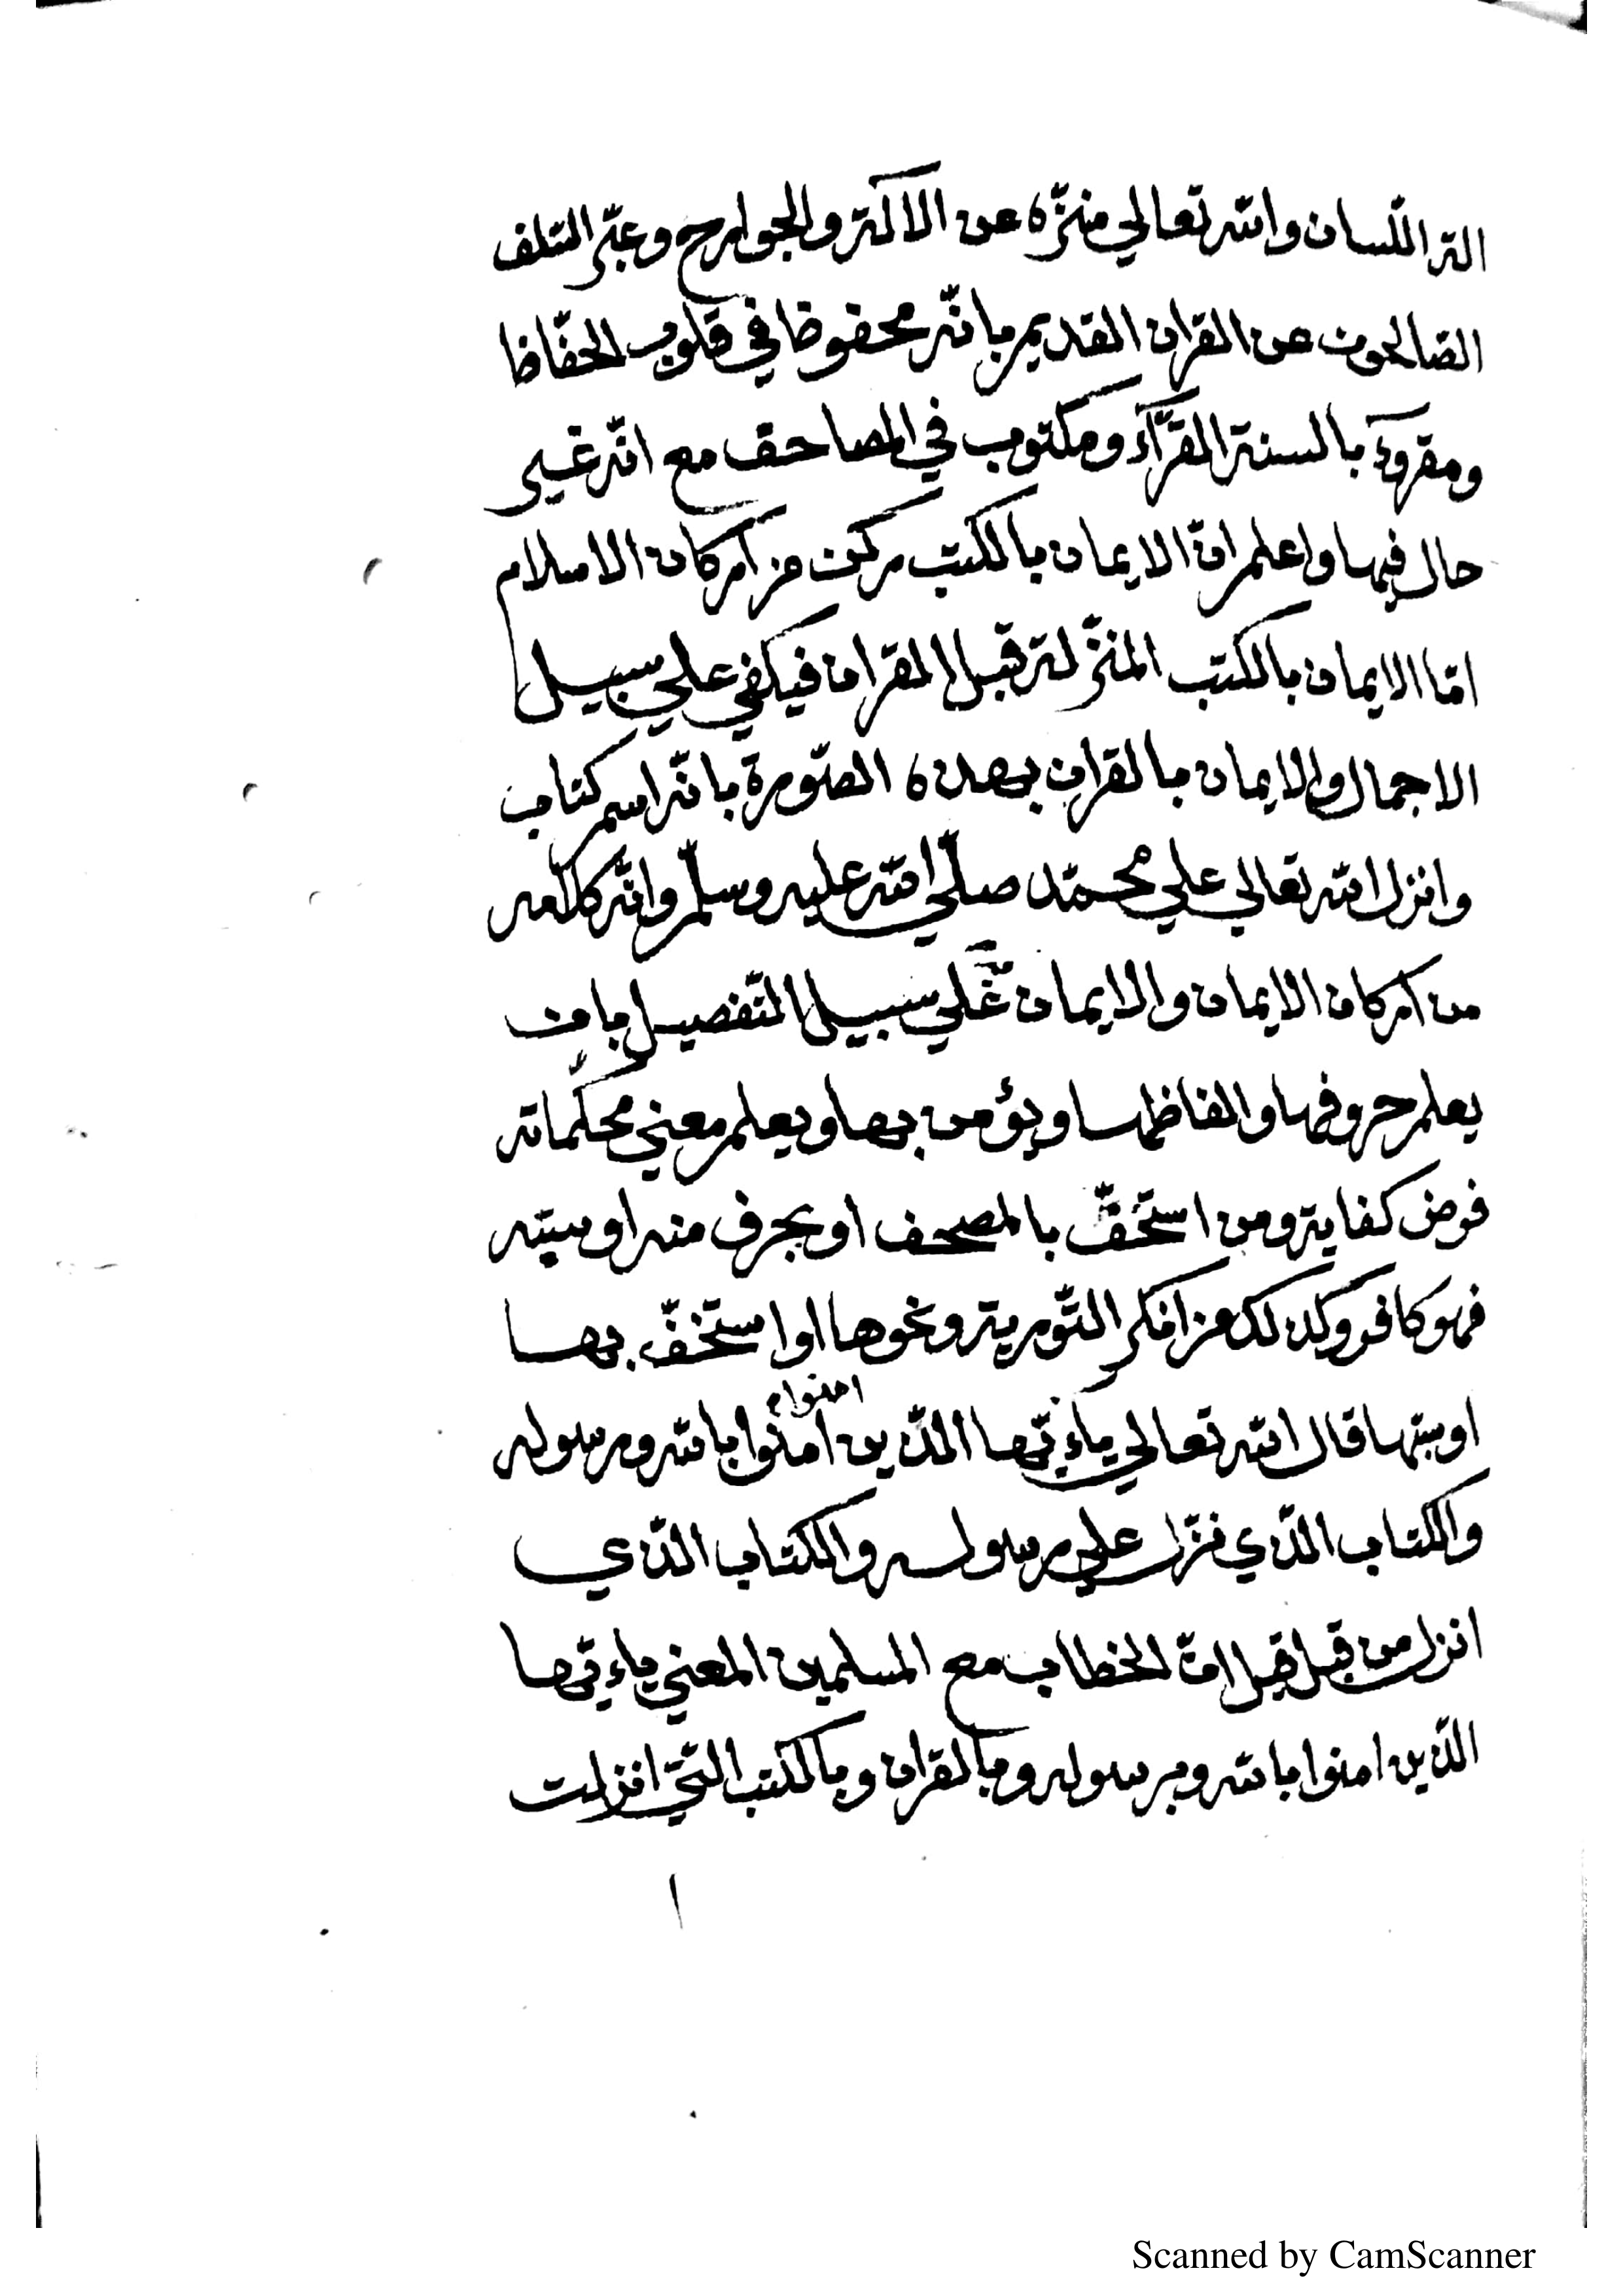 الة اللّسان والله تعالي منزّه عن الالة والجوارح وعبّر السّلف
الصّالحون عن القران القديم بانّه محفوظ في قلوب الحفّاظ
ومقروء بالسنة القرّآء ومكتوب في المصاحف مع انّه غير
حال فيها واعلم انّ الايمان بالكتب ركن من اركان الاسلام
امّا الايمان بالكتب المنزّلة قبل القران فيكفي علي سبيل
الاجمال والايمان بالقران بهذه الصّورة بانّه اسم كتاب
وانزل الله تعالي علي محمّد صلّي الله عليه وسلّم وانّه كلامه
من اركان الايمان والايمان علي سبيل التّفصيل بان
يعلم حروفها والفاظها ويؤمن بها ويعلم معني محكماته
فرض كفاية ومن استخفّ بالمصحف او بحرف منه او سبّه
فهو كافر وكذلك من انكر التّورية ونحوها او استخفّ بها
او سبّها قال الله تعالي ياءيّها الّذين امنوا امنوا بالله ورسوله
والكتاب الّذي نزّل علي رسوله والكتاب الّذي
انزل من قبل قيل انّ الخطاب مع المسلمين المعني ياءيّها
الّذين امنوا بالله وبرسوله وبالقران وبالكتب الّتي انزلت
Scanned by CamScanner